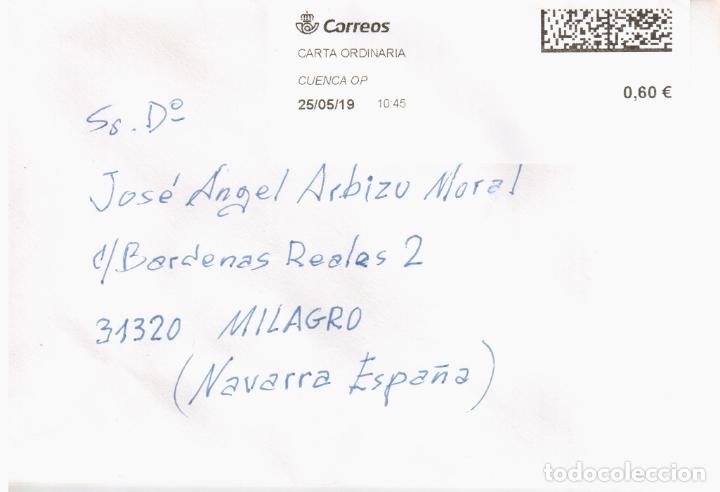 Correos
CARTA ORDINARIA
CUENCA OP
25/05/19 10:45
0,60 €
Sr. Dº
José Ángel Arbizu Moral
c/ Bardenas Reales 2
31320 MILAGRO
(Navarra España)
todocoleccion